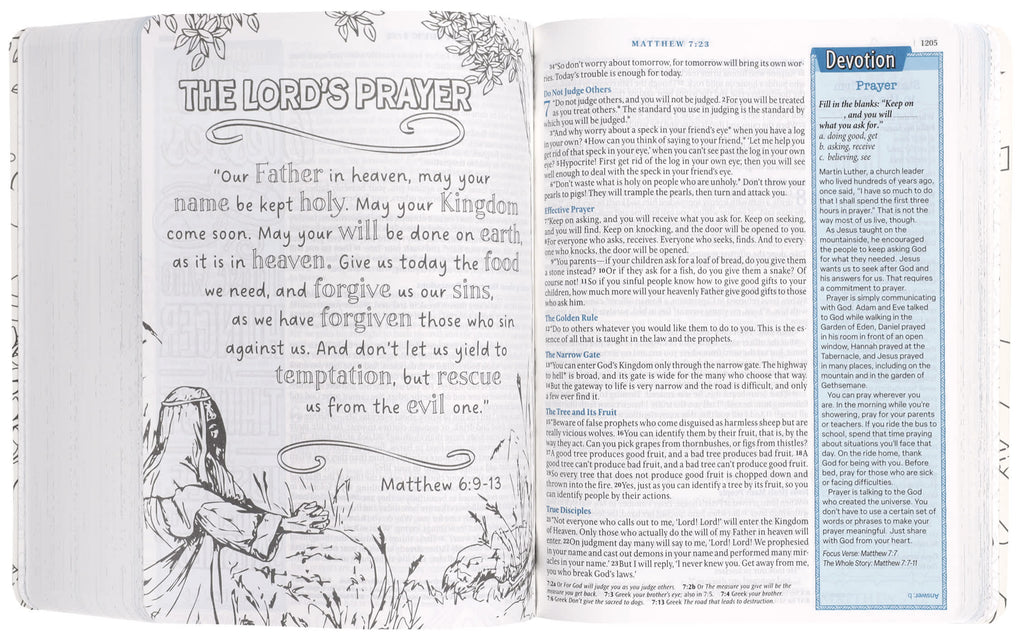 THE LORD'S PRAYER
"Our Father in heaven, may your
name be kept holy. May your Kingdom
come soon. May your will be done on earth,
as it is in heaven. Give us today the food
we need, and forgive us our sins,
as we have forgiven those who sin
against us. And don't let us yield to
temptation, but rescue
us from the evil one."
Matthew 6:9-13
MATTHEW 7:23
1205
34"So don't worry about tomorrow, for tomorrow will bring its own wor-
ries. Today's trouble is enough for today.
Do Not Judge Others
7 "Do not judge others, and you will not be judged. 2For you will be treated
as you treat others.* The standard you use in judging is the standard by
which you will be judged.*
3"And why worry about a speck in your friend's eye* when you have a log
in your own? 4How can you think of saying to your friend,* 'Let me help you
get rid of that speck in your eye,' when you can't see past the log in your own
eye? 5Hypocrite! First get rid of the log in your own eye; then you will see
well enough to deal with the speck in your friend's eye.
6"Don't waste what is holy on people who are unholy.* Don't throw your
pearls to pigs! They will trample the pearls, then turn and attack you.
Effective Prayer
7"Keep on asking, and you will receive what you ask for. Keep on seeking,
and you will find. Keep on knocking, and the door will be opened to you.
8For everyone who asks, receives. Everyone who seeks, finds. And to every-
one who knocks, the door will be opened.
9"You parents—if your children ask for a loaf of bread, do you give them
a stone instead? 10Or if they ask for a fish, do you give them a snake? Of
course not! 11So if you sinful people know how to give good gifts to your
children, how much more will your heavenly Father give good gifts to those
who ask him.
The Golden Rule
12"Do to others whatever you would like them to do to you. This is the es-
sence of all that is taught in the law and the prophets.
The Narrow Gate
13"You can enter God's Kingdom only through the narrow gate. The highway
to hell* is broad, and its gate is wide for the many who choose that way.
14But the gateway to life is very narrow and the road is difficult, and only
a few ever find it.
The Tree and Its Fruit
15"Beware of false prophets who come disguised as harmless sheep but are
really vicious wolves. 16You can identify them by their fruit, that is, by the
way they act. Can you pick grapes from thornbushes, or figs from thistles?
17A good tree produces good fruit, and a bad tree produces bad fruit. 18A
good tree can't produce bad fruit, and a bad tree can't produce good fruit.
19So every tree that does not produce good fruit is chopped down and
thrown into the fire. 20Yes, just as you can identify a tree by its fruit, so you
can identify people by their actions.
True Disciples
21"Not everyone who calls out to me, 'Lord! Lord!' will enter the Kingdom
of Heaven. Only those who actually do the will of my Father in heaven will
enter. 22On judgment day many will say to me, 'Lord! Lord! We prophesied
in your name and cast out demons in your name and performed many mir-
acles in your name.' 23But I will reply, 'I never knew you. Get away from me,
you who break God's laws.'
7:2a Or For God will judge you as you judge others. 7:2b Or The measure you give will be the
measure you get back. 7:3 Greek your brother's eye; also in 7:5. 7:4 Greek your brother.
7:6 Greek Don't give the sacred to dogs. 7:13 Greek The road that leads to destruction.
Devotion
Prayer
Fill in the blanks: "Keep on
____, and you will ____
what you ask for."
a. doing good, get
b. asking, receive
c. believing, see
Martin Luther, a church leader
who lived hundreds of years ago,
once said, "I have so much to do
that I shall spend the first three
hours in prayer." That is not the
way most of us live, though.
As Jesus taught on the
mountainside, he encouraged
the people to keep asking God
for what they needed. Jesus
wants us to seek after God and
his answers for us. That requires
a commitment to prayer.
Prayer is simply communicating
with God. Adam and Eve talked
to God while walking in the
Garden of Eden, Daniel prayed
in his room in front of an open
window, Hannah prayed at the
Tabernacle, and Jesus prayed
in many places, including on the
mountain and in the garden of
Gethsemane.
You can pray wherever you
are. In the morning while you're
showering, pray for your parents
or teachers. If you ride the bus to
school, spend that time praying
about situations you'll face that
day. On the ride home, thank
God for being with you. Before
bed, pray for those who are sick
or facing difficulties.
Prayer is talking to the God
who created the universe. You
don't have to use a certain set of
words or phrases to make your
prayer meaningful. Just share
with God from your heart.
Focus Verse: Matthew 7:7
The Whole Story: Matthew 7:7-11
Answer: b